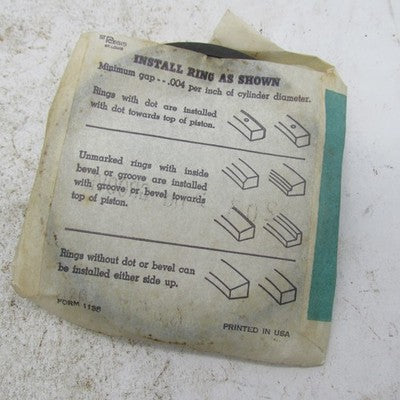 INSTALL RING AS SHOWN
Minimum gap--.004 per inch of cylinder diameter.
Rings with dot are installed
with dot towards top of piston.
Unmarked rings with inside
bevel or groove are installed
with groove or bevel towards
top of piston.
Rings without dot or bevel can
be installed either side up.
FORM 1136
PRINTED IN USA